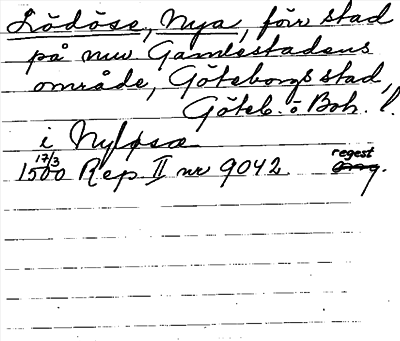 Lödöse, Nya, förr stad
på nuv Gamlestadens
område, Göteborgs stad,
Göteb. o Boh. l.
i Nyløsæ
17/3
1500 Rep II nr 9042 regest